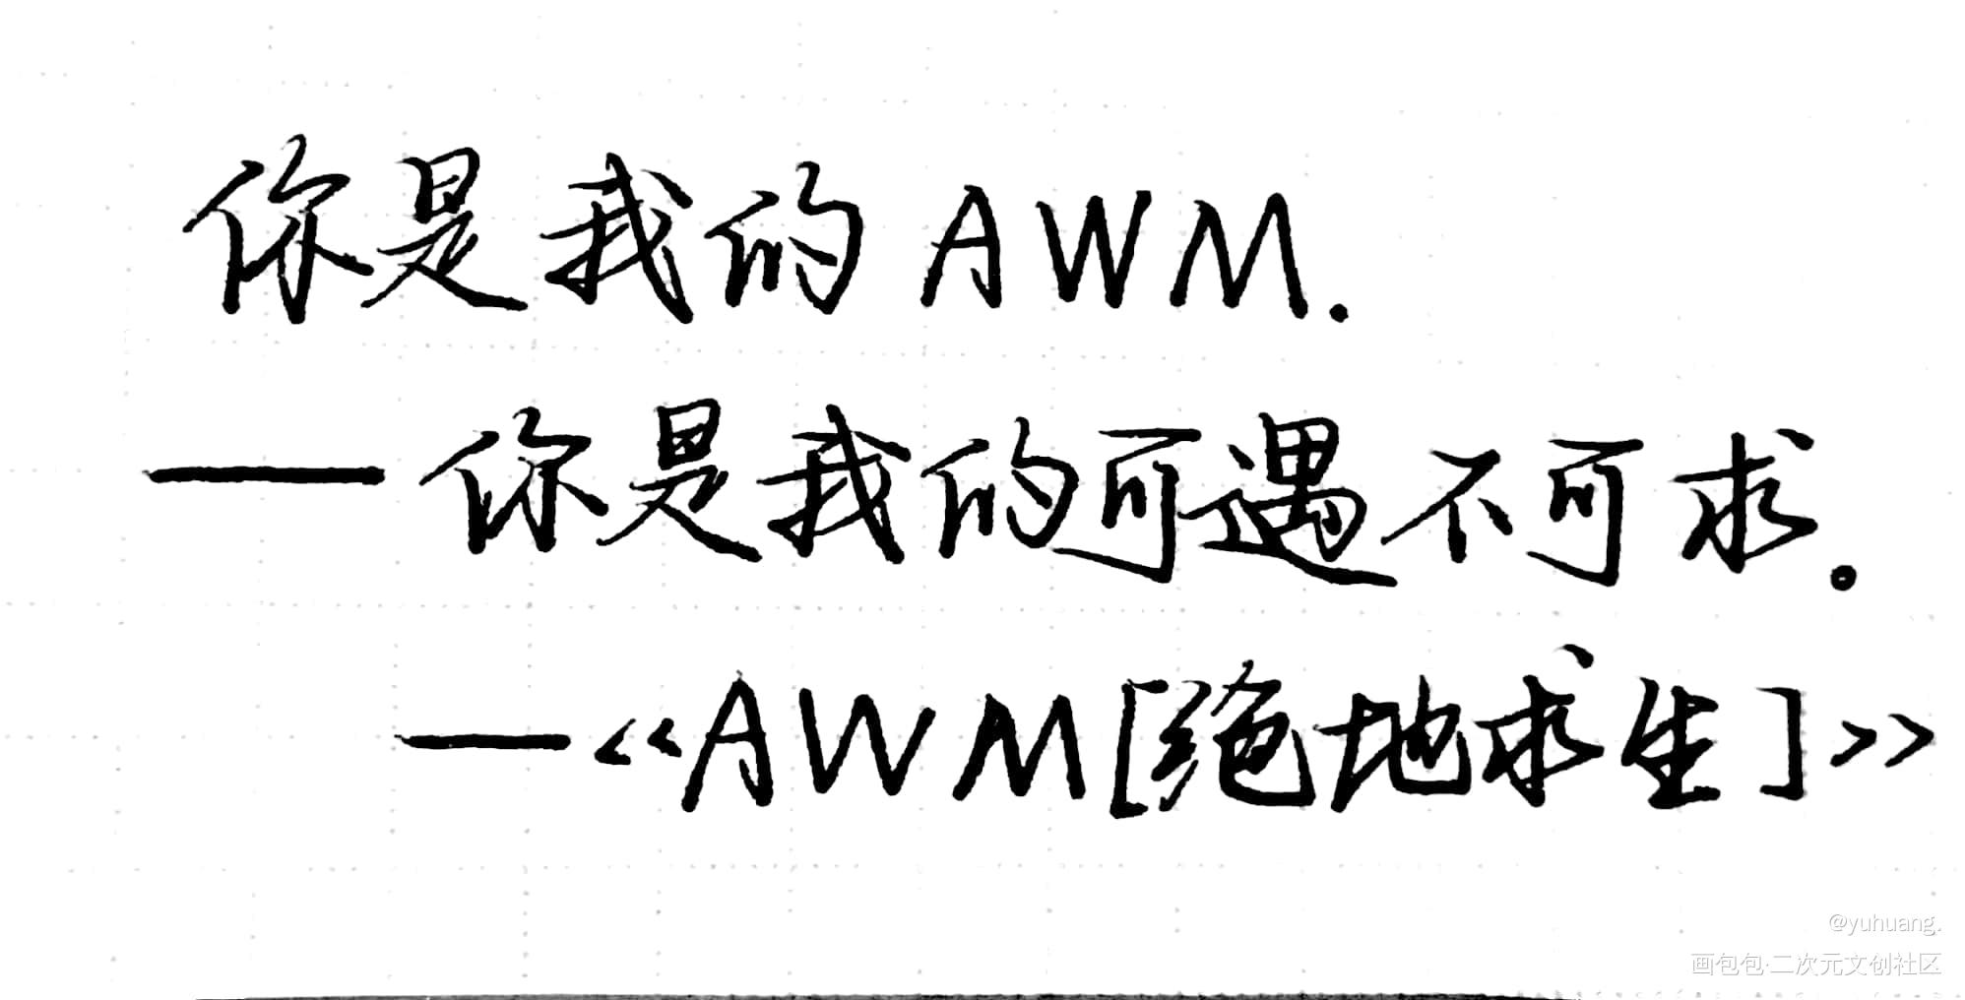 你是我的AWM.
—你是我的可遇不可求。
—《AWM[绝地求生]》
@yuhuang.
画包包·二次元文创社区